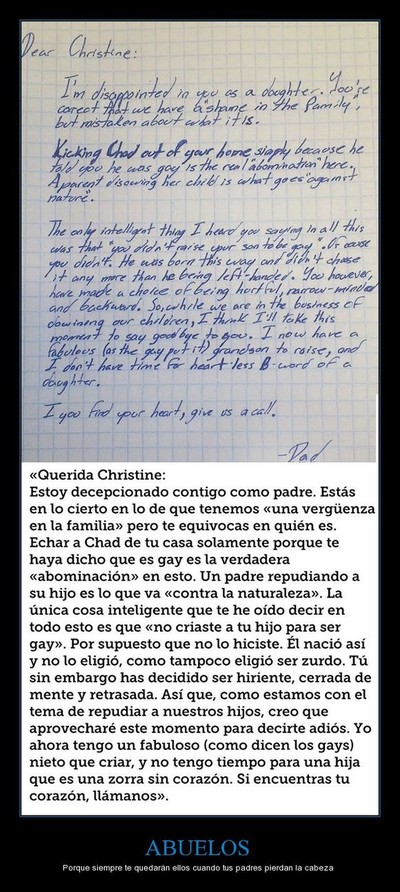 Dear Christine:
I'm disappointed in you as a daughter. You're
corect that we have a "shame in the family",
but mistaken about what it is.
Kicking Chad out of your home simply because he
told you he was gay is the real "abomination" here.
A parent disowning her child is what goes "against
nature".
The only intelligent thing I heard you saying in all this
was that "you didn't raise your son to be gay". Of cause
you didn't. He was born this way and didn't choose
it any more than he being left-handed. You however,
have made a choice of being hurtful, narrow-minded
and backward. So, while we are in the business of
disowning our children, I think I'll take this
moment to say goodbye to you. I now have a
fabulous (as the gay put it) grandson to raise, and
I don't have time for heart less B-word of a
daughter.
I you find your heart, give us a call.
-Dad
«Querida Christine:
Estoy decepcionado contigo como padre. Estás
en lo cierto en lo de que tenemos «una vergüenza
en la familia» pero te equivocas en quién es.
Echar a Chad de tu casa solamente porque te
haya dicho que es gay es la verdadera
«abominación» en esto. Un padre repudiando a
su hijo es lo que va «contra la naturaleza». La
única cosa inteligente que te he oído decir en
todo esto es que «no criaste a tu hijo para ser
gay». Por supuesto que no lo hiciste. Él nació así
y no lo eligió, como tampoco eligió ser zurdo. Tú
sin embargo has decidido ser hiriente, cerrada de
mente y retrasada. Así que, como estamos con el
tema de repudiar a nuestros hijos, creo que
aprovecharé este momento para decirte adiós. Yo
ahora tengo un fabuloso (como dicen los gays)
nieto que criar, y no tengo tiempo para una hija
que es una zorra sin corazón. Si encuentras tu
corazón, llámanos».
ABUELOS
Porque siempre te quedarán ellos cuando tus padres pierdan la cabeza